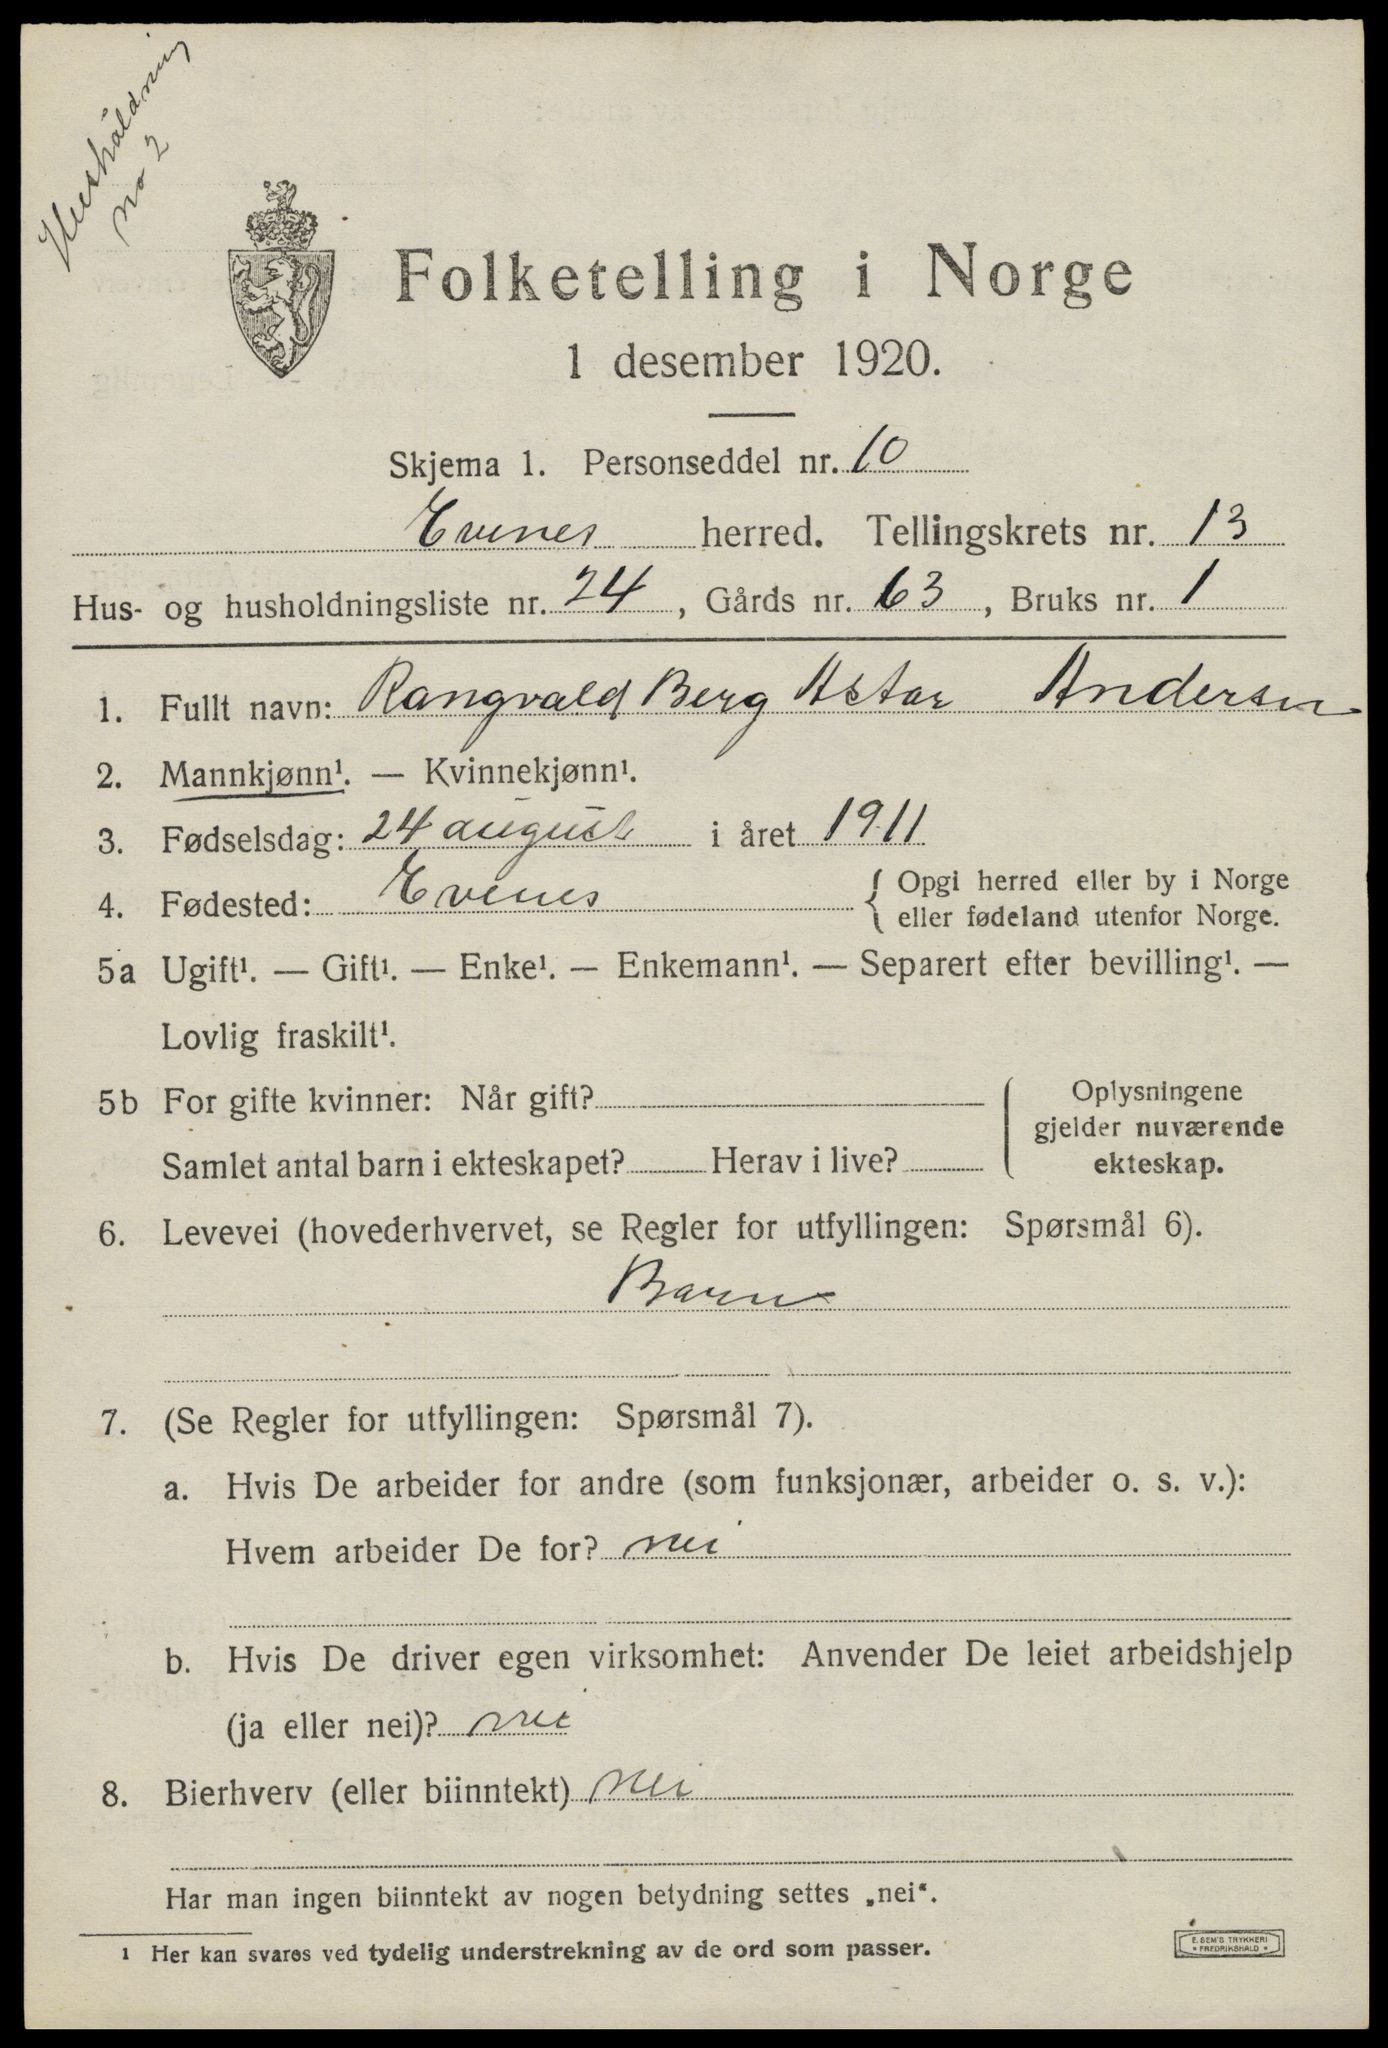 Hushåldning
no 2
Folketelling i Norge
1 desember 1920.
Skjema 1. Personseddel nr. 10
Evenes herred. Tellingskrets nr. 13
Hus- og husholdningsliste nr. 24, Gårds nr. 63, Bruks nr. 1
1. Fullt navn: Rangvald Berg Astar Andersen
2. Mannkjønn¹. — Kvinnekjønn¹.
3. Fødselsdag: 24 august i året 1911
4. Fødested: Evenes { Opgi herred eller by i Norge
eller fødeland utenfor Norge.
5a Ugift¹. — Gift¹. — Enke¹. — Enkemann¹. — Separert efter bevilling¹. —
Lovlig fraskilt¹.
5b For gifte kvinner: Når gift?
Samlet antal barn i ekteskapet? Herav i live?
Oplysningene
gjelder nuværende
ekteskap.
6. Levevei (hovederhvervet, se Regler for utfyllingen: Spørsmål 6).
Barn
7. (Se Regler for utfyllingen: Spørsmål 7).
a. Hvis De arbeider for andre (som funksjonær, arbeider o. s. v.):
Hvem arbeider De for? nei
b. Hvis De driver egen virksomhet: Anvender De leiet arbeidshjelp
(ja eller nei)? nei
8. Bierhverv (eller biinntekt) nei
Har man ingen biinntekt av nogen betydning settes „nei“.
1 Her kan svares ved tydelig understrekning av de ord som passer.
E. SEM'S TRYKKERI
* FREDRIKSHALD *